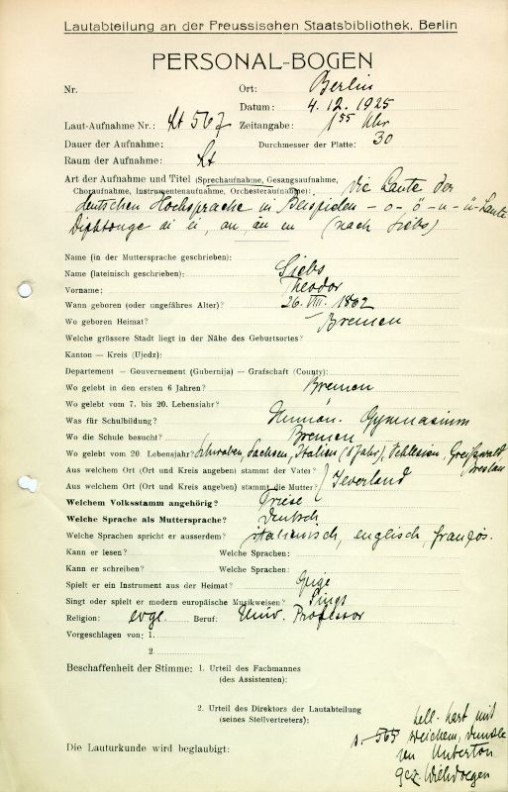 Lautabteilung an der Preussischen Staatsbibliothek, Berlin
PERSONAL-BOGEN
Nr. Ort: Berlin
Datum: 4. 12. 1925
Laut-Aufnahme Nr.: Lt 567 Zeitangabe: 1 55 Uhr
Dauer der Aufnahme: Durchmesser der Platte: 30
Raum der Aufnahme: Lt
Art der Aufnahme und Titel (Sprechaufnahme, Gesangsaufnahme,
Choraufnahme, Instrumentenaufnahme, Orchesteraufnahme): Die Laute der
deutschen Hochsprache in Beispielen – o – ö – u – ü-Laute
Diphtonge ai ei, au, äu eu (nach Siebs)
Name (in der Muttersprache geschrieben):
Name (lateinisch geschrieben): Siebs
Vorname: Theodor
Wann geboren (oder ungefähres Alter)? 26. VIII. 1862
Wo geboren Heimat? Bremen
Welche grössere Stadt liegt in der Nähe des Geburtsortes?
Kanton — Kreis (Ujedz):
Departement — Gouvernement (Gubernija) — Grafschaft (County):
Wo gelebt in den ersten 6 Jahren? Bremen
Wo gelebt vom 7. bis 20. Lebensjahr?
Was für Schulbildung? Human. Gymnasium
Wo die Schule besucht? Bremen
Wo gelebt vom 20. Lebensjahr? Schwaben, Sachsen, Italien (1 Jahr), Schlesien, Greifswald
Breslau
Aus welchem Ort (Ort und Kreis angeben) stammt der Vater?
Aus welchem Ort (Ort und Kreis angeben) stammt die Mutter? } Jeverland
Welchem Volksstamm angehörig? Friese
Welche Sprache als Muttersprache? Deutsch
Welche Sprachen spricht er ausserdem? italienisch, englisch, französ.
Kann er lesen? Welche Sprachen:
Kann er schreiben? Welche Sprachen:
Spielt er ein Instrument aus der Heimat? Geige
Singt oder spielt er moderne europäische Musikweisen? Singt
Religion: evgl. Beruf: Univ. Professor
Vorgeschlagen von: 1.
2.
Beschaffenheit der Stimme: 1. Urteil des Fachmannes
(des Assistenten):
2. Urteil des Direktors der Lautabteilung
(seines Stellvertreters):
s. 565 hell-hart mit
weichem, dunkle
ren Unterton
Die Lauturkunde wird beglaubigt: gez. Wilh. Doegen